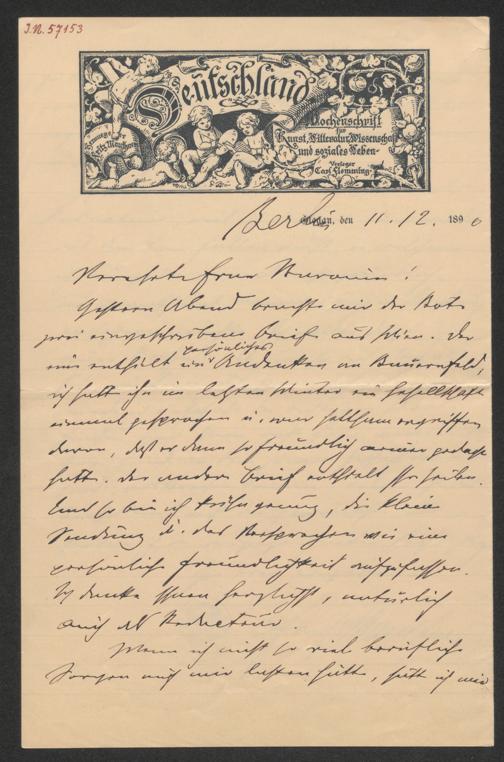 J.N. 57153
Deutschland
Wochenschrift
für
Kunst, Litteratur, Wissenschaft
und soziales Leben
Herausgeber
Fritz Mauthner
Verleger
Carl Flemming
Berlin
Glogau, den 11. 12. 1890
Verehrte Frau Baronin!
Gestern Abend brachte mir der Bote
zwei eingeschriebene Briefe aus Wien. Der
eine enthält ein persönliches Andenken an Bauernfeld,
ich hatte ihn im letzten Winter in Gesellschaft
einmal gesprochen u. war seltsam ergriffen
davon, daß er dann so freundlich meiner gedacht
hatte. Der andere Brief enthielt Ihre Zeilen.
Und so bin ich kühn genug, die kleine
Sendung u. das Versprechen wie eine
persönliche Freundlichkeit aufzufassen.
Ich danke Ihnen herzlichst, natürlich
auch als Redacteur.
Wenn ich nicht so viel berufliche
Sorgen auf mir lasten hätte, hätt ich mir